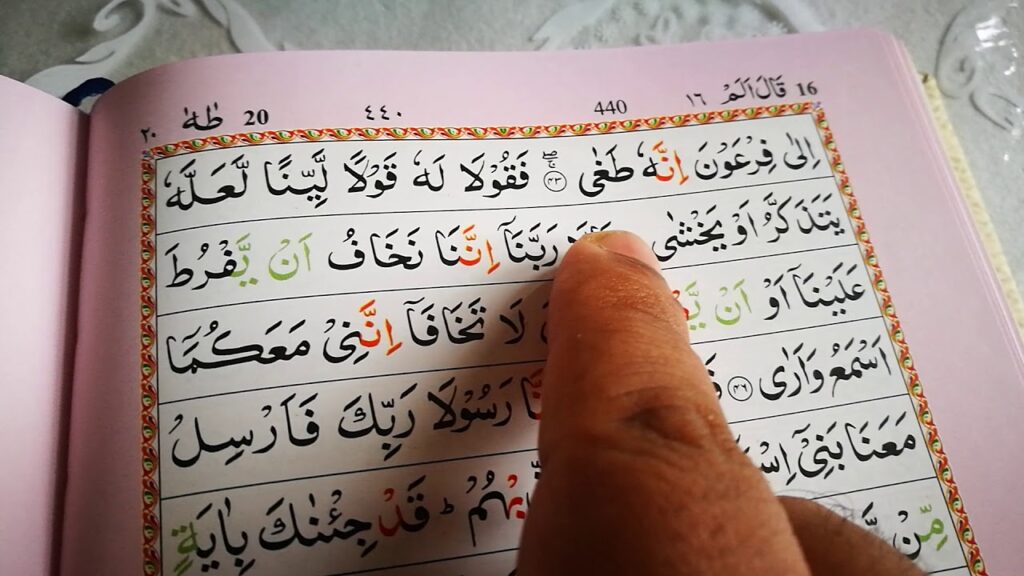 16 قَالَ اَلَمْ ١٦ 440 ٤٤٠ 20 طٰهٰ ٢٠
اِلٰى فِرْعَوْنَ اِنَّهٗ طَغٰى ۝٤٣ فَقُوْلَا لَهٗ قَوْلًا لَّيِّنًا لَّعَلَّهٗ
يَتَذَكَّرُ اَوْ يَخْشٰى رَبَّنَاۤ اِنَّنَا نَخَافُ اَنْ يَّفْرُطَ
عَلَيْنَاۤ اَوْ اَنْ لَا تَخَافَاۤ اِنَّنِيْ مَعَكُمَاۤ
اَسْمَعُ وَاَرٰى رَسُوْلَا رَبِّكَ فَاَرْسِلْ
مَعَنَا بَنِيْۤ قَدْ جِئْنٰكَ بِاٰيَةٍ
مِّنْ